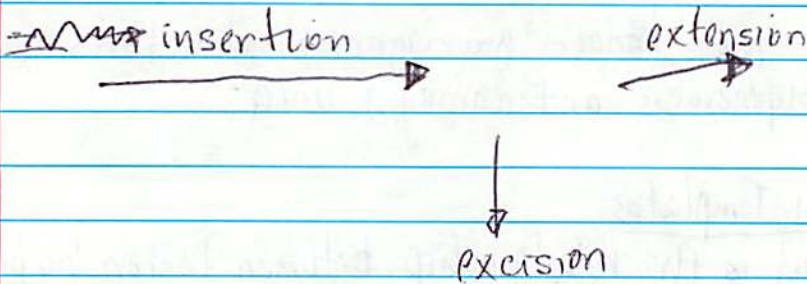 insertion
extension
excision